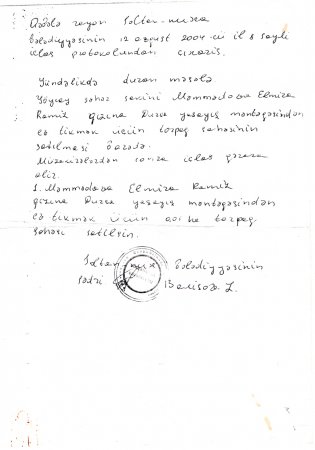 Qəbələ rayon Soltan-nuxa
bələdiyyəsinin 12 avqust 2004-cü il 6 saylı
iclas protokolundan çıxarış.
Gündəlikdə duran məsələ
Yaycaq sahəsi Məmmədova Elmira
Ramik qızına Duruca yaşayış məntəqəsindən
ev tikmək üçün torpaq sahəsinin
satılması barədə.
Müzakirələrdən sonra iclas qərara
alır.
1. Məmmədova Elmira Ramik
qızına Duruca yaşayış məntəqəsindən
ev tikmək üçün torpaq
sahəsi satılsın.
Soltan bələdiyyəsinin
sədri